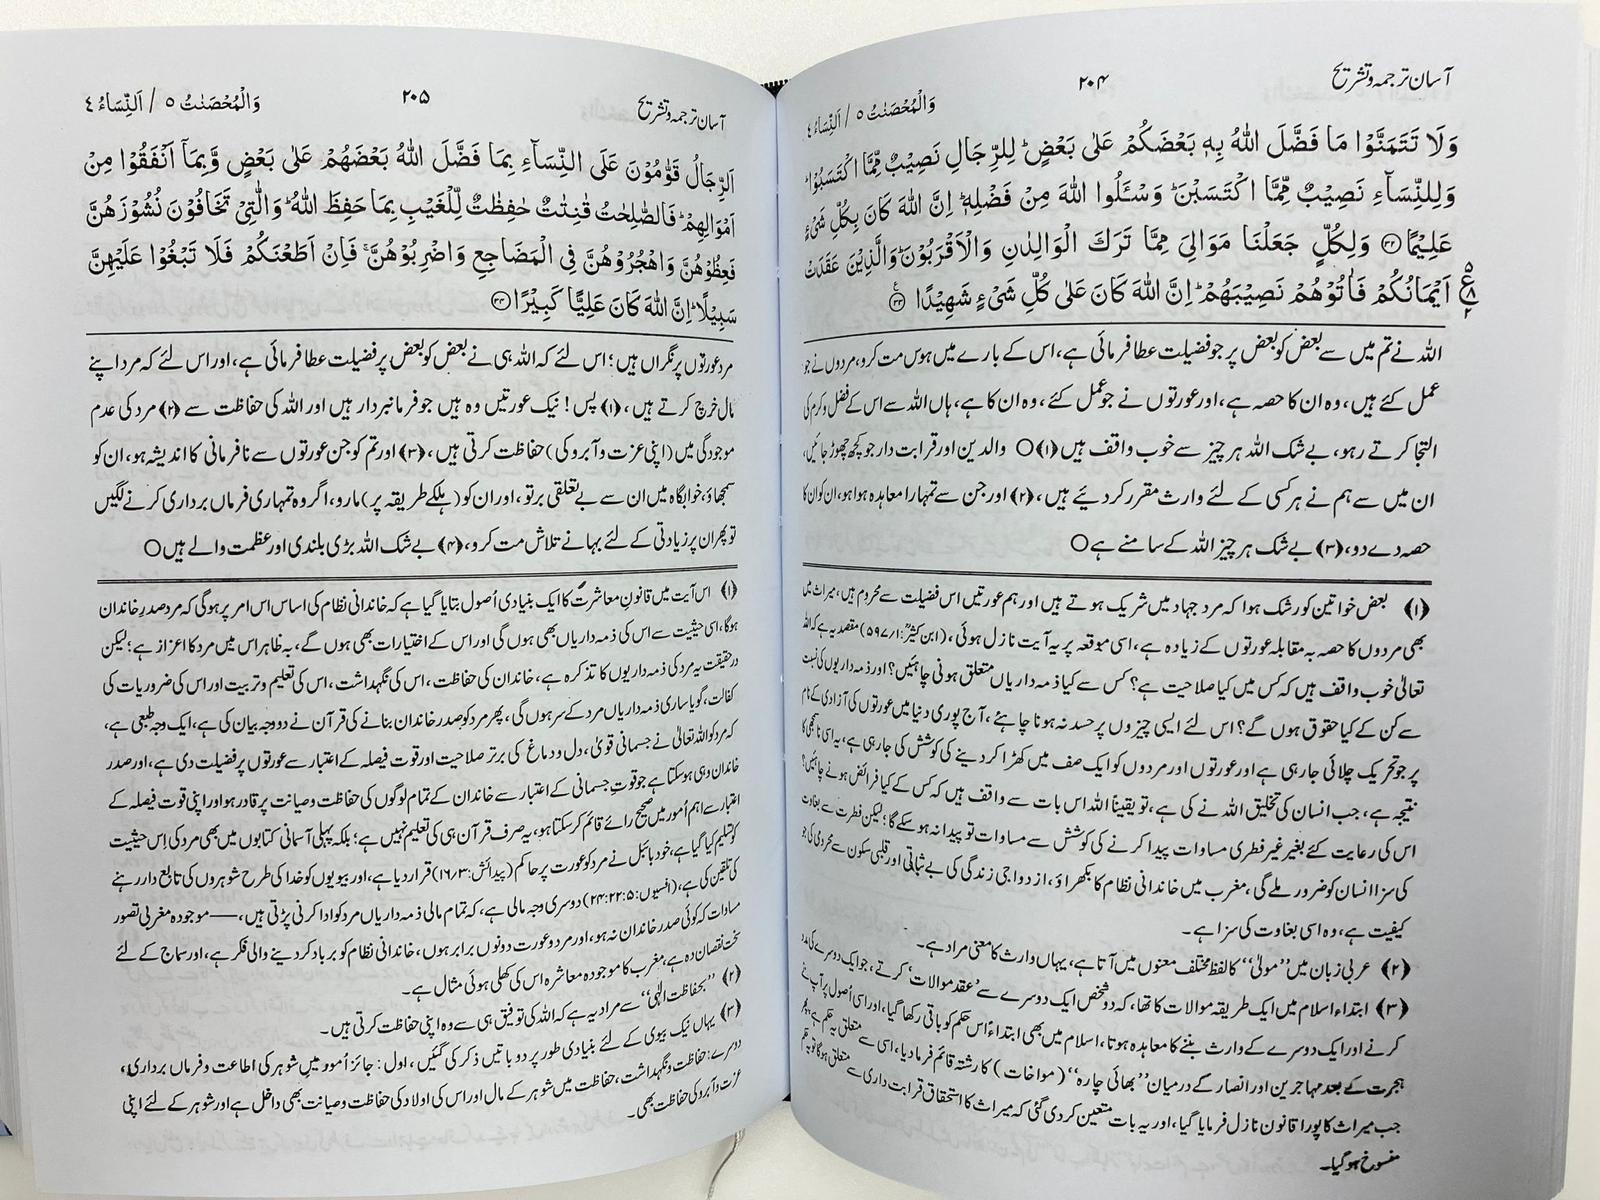 آسان ترجمہ و تشریح
۲۰۴
وَالْمُحْصَنٰتُ ٥ / اَلنِّسَآءُ ٤
وَلَا تَتَمَنَّوْا مَا فَضَّلَ اللّٰهُ بِهٖ بَعْضَكُمْ عَلٰى بَعْضٍ ۚ لِلرِّجَالِ نَصِيْبٌ مِّمَّا اكْتَسَبُوْا ۚ
وَلِلنِّسَآءِ نَصِيْبٌ مِّمَّا اكْتَسَبْنَ ۚ وَسْـَٔلُوا اللّٰهَ مِنْ فَضْلِهٖ ۚ اِنَّ اللّٰهَ كَانَ بِكُلِّ شَيْءٍ
عَلِيْمًا ﴿٣٢﴾ وَلِكُلٍّ جَعَلْنَا مَوَالِيَ مِمَّا تَرَكَ الْوَالِدٰنِ وَالْاَقْرَبُوْنَ ۚ وَالَّذِيْنَ عَقَدَتْ
اَيْمَانُكُمْ فَاٰتُوْهُمْ نَصِيْبَهُمْ ۚ اِنَّ اللّٰهَ كَانَ عَلٰى كُلِّ شَيْءٍ شَهِيْدًا ﴿٣٣﴾
اللہ نے تم میں سے بعض کو بعض پر جو فضیلت عطا فرمائی ہے، اس کے بارے میں ہوس مت کرو، مردوں نے جو
عمل کئے ہیں، وہ ان کا حصہ ہے، اور عورتوں نے جو عمل کئے، وہ ان کا ہے، ہاں اللہ سے اس کے فضل و کرم کی
التجا کرتے رہو، بے شک اللہ ہر چیز سے خوب واقف ہیں ﴿۱﴾ ○ والدین اور قرابت دار جو کچھ چھوڑ جائیں،
ان میں سے ہم نے ہر کسی کے لئے وارث مقرر کر دیئے ہیں، ﴿۲﴾ اور جن سے تمہارا معاہدہ ہوا ہو، ان کو ان کا
حصہ دے دو، ﴿۳﴾ بے شک ہر چیز اللہ کے سامنے ہے ○
﴿۱﴾ بعض خواتین کو رشک ہوا کہ مرد جہاد میں شریک ہوتے ہیں اور ہم عورتیں اس فضیلت سے محروم ہیں، میراث میں
بھی مردوں کا حصہ بہ مقابلہ عورتوں کے زیادہ ہے، اسی موقعہ پر یہ آیت نازل ہوئی، (ابن کثیر: ۱/۵۹۷) مقصد یہ ہے کہ اللہ
تعالیٰ خوب واقف ہیں کہ کس میں کیا صلاحیت ہے؟ کس سے کیا ذمہ داریاں متعلق ہونی چاہئیں؟ اور ذمہ داریوں کی نسبت
سے کن کے کیا حقوق ہوں گے؟ اس لئے ایسی چیزوں پر حسد نہ ہونا چاہئے، آج پوری دنیا میں عورتوں کی آزادی کے نام
پر جو تحریک چلائی جا رہی ہے اور عورتوں اور مردوں کو ایک صف میں کھڑا کر دینے کی کوشش کی جا رہی ہے، یہ اسی نا سمجھی کا
نتیجہ ہے، جب انسان کی تخلیق اللہ نے کی ہے، تو یقیناً اللہ اس بات سے واقف ہیں کہ کس کے کیا فرائض ہونے چاہئیں؟
اس کی رعایت کئے بغیر غیر فطری مساوات پیدا کرنے کی کوشش سے مساوات تو پیدا نہ ہو سکے گا؛ لیکن فطرت سے بغاوت
کی سزا انسان کو ضرور ملے گی، مغرب میں خاندانی نظام کا بکھراؤ، ازدواجی زندگی کی بے ثباتی اور قلبی سکون سے محرومی کی جو
کیفیت ہے، وہ اسی بغاوت کی سزا ہے۔
﴿۲﴾ عربی زبان میں ”مولیٰ“ کا لفظ مختلف معنوں میں آتا ہے، یہاں وارث کا معنی مراد ہے۔
﴿۳﴾ ابتداء اسلام میں ایک طریقہ موالات کا تھا، کہ دو شخص ایک دوسرے سے ’عقد موالات‘ کرتے، جو ایک دوسرے کی مدد
کرنے اور ایک دوسرے کے وارث بننے کا معاہدہ ہوتا، اسلام میں بھی ابتداءً اس حکم کو باقی رکھا گیا، اور اسی اُصول پر آپ نے
ہجرت کے بعد مہاجرین اور انصار کے درمیان ”بھائی چارہ“ (مواخات) کا رشتہ قائم فرما دیا، اسی سے متعلق یہ حکم ہے، پھر
جب میراث کا پورا قانون نازل فرمایا گیا، اور یہ بات متعین کر دی گئی کہ میراث کا استحقاق قرابت داری سے متعلق ہوگا تو یہ حکم
منسوخ ہو گیا۔
آسان ترجمہ و تشریح
۲۰۵
وَالْمُحْصَنٰتُ ٥ / اَلنِّسَآءُ ٤
اَلرِّجَالُ قَوّٰمُوْنَ عَلَى النِّسَآءِ بِمَا فَضَّلَ اللّٰهُ بَعْضَهُمْ عَلٰى بَعْضٍ وَّبِمَآ اَنْفَقُوْا مِنْ
اَمْوَالِهِمْ ۚ فَالصّٰلِحٰتُ قٰنِتٰتٌ حٰفِظٰتٌ لِّلْغَيْبِ بِمَا حَفِظَ اللّٰهُ ۚ وَالّٰتِيْ تَخَافُوْنَ نُشُوْزَهُنَّ
فَعِظُوْهُنَّ وَاهْجُرُوْهُنَّ فِي الْمَضَاجِعِ وَاضْرِبُوْهُنَّ ۚ فَاِنْ اَطَعْنَكُمْ فَلَا تَبْغُوْا عَلَيْهِنَّ
سَبِيْلًا ۚ اِنَّ اللّٰهَ كَانَ عَلِيًّا كَبِيْرًا ﴿٣٤﴾
مرد عورتوں پر نگراں ہیں؛ اس لئے کہ اللہ ہی نے بعض کو بعض پر فضیلت عطا فرمائی ہے، اور اس لئے کہ مرد اپنے
مال خرچ کرتے ہیں، ﴿۱﴾ پس! نیک عورتیں وہ ہیں جو فرمانبردار ہیں اور اللہ کی حفاظت سے ﴿۲﴾ مرد کی عدم
موجودگی میں (اپنی عزت و آبرو کی) حفاظت کرتی ہیں، ﴿۳﴾ اور تم کو جن عورتوں سے نافرمانی کا اندیشہ ہو، ان کو
سمجھاؤ، خوابگاہ میں ان سے بے تعلقی برتو، اور ان کو (ہلکے طریقہ پر) مارو، اگر وہ تمہاری فرماں برداری کرنے لگیں
تو پھر ان پر زیادتی کے لئے بہانے تلاش مت کرو، ﴿۴﴾ بے شک اللہ بڑی بلندی اور عظمت والے ہیں ○
﴿۱﴾ اس آیت میں قانونِ معاشرت کا ایک بنیادی اُصول بتایا گیا ہے کہ خاندانی نظام کی اساس اس امر پر ہوگی کہ مرد صدرِ خاندان
ہوگا، اسی حیثیت سے اس کی ذمہ داریاں بھی ہوں گی اور اس کے اختیارات بھی ہوں گے، بہ ظاہر اس میں مرد کا اعزاز ہے؛ لیکن
در حقیقت یہ مرد کی ذمہ داریوں کا تذکرہ ہے، خاندان کی حفاظت، اس کی نگہداشت، اس کی تعلیم و تربیت اور اس کی ضروریات کی
کفالت، گویا ساری ذمہ داریاں مرد کے سر ہوں گی، پھر مرد کو صدر خاندان بنانے کی قرآن نے دو وجہ بیان کی ہے، ایک وجہ طبعی ہے،
کہ مرد کو اللہ تعالیٰ نے جسمانی قویٰ، دل و دماغ کی برتر صلاحیت اور قوت فیصلہ کے اعتبار سے عورتوں پر فضیلت دی ہے، اور صدر
خاندان وہی ہو سکتا ہے جو قوتِ جسمانی کے اعتبار سے خاندان کے تمام لوگوں کی حفاظت و صیانت پر قادر ہو اور اپنی قوت فیصلہ کے
اعتبار سے اہم اُمور میں صحیح رائے قائم کر سکتا ہو، یہ صرف قرآن ہی کی تعلیم نہیں ہے؛ بلکہ پہلی آسمانی کتابوں میں بھی مرد کی اس حیثیت
کو تسلیم کیا گیا ہے، خود بائبل نے مرد کو عورت پر حاکم (پیدائش: ۳/۱۶) قرار دیا ہے، اور بیویوں کو خدا کی طرح شوہروں کی تابع دار رہنے
کی تلقین کی ہے، (افسیوں: ۵:۲۲:۲۴) دوسری وجہ مالی ہے، کہ تمام مالی ذمہ داریاں مرد کو ادا کرنی پڑتی ہیں، —— موجودہ مغربی تصور
مساوات کہ کوئی صدر خاندان نہ ہو، اور مرد و عورت دونوں برابر ہوں، خاندانی نظام کو برباد کر دینے والی فکر ہے، اور سماج کے لئے
سخت نقصان دہ ہے، مغرب کا موجودہ معاشرہ اس کی کھلی ہوئی مثال ہے۔
﴿۲﴾ ”بحفاظت الٰہی“ سے مراد یہ ہے کہ اللہ کی توفیق ہی سے وہ اپنی حفاظت کرتی ہیں۔
﴿۳﴾ یہاں نیک بیوی کے لئے بنیادی طور پر دو باتیں ذکر کی گئیں، اول: جائز اُمور میں شوہر کی اطاعت و فرماں برداری،
دوسرے: حفاظت و نگہداشت، حفاظت میں شوہر کے مال اور اس کی اولاد کی حفاظت و صیانت بھی داخل ہے اور شوہر کے لئے اپنی
عزت و آبرو کی حفاظت بھی۔